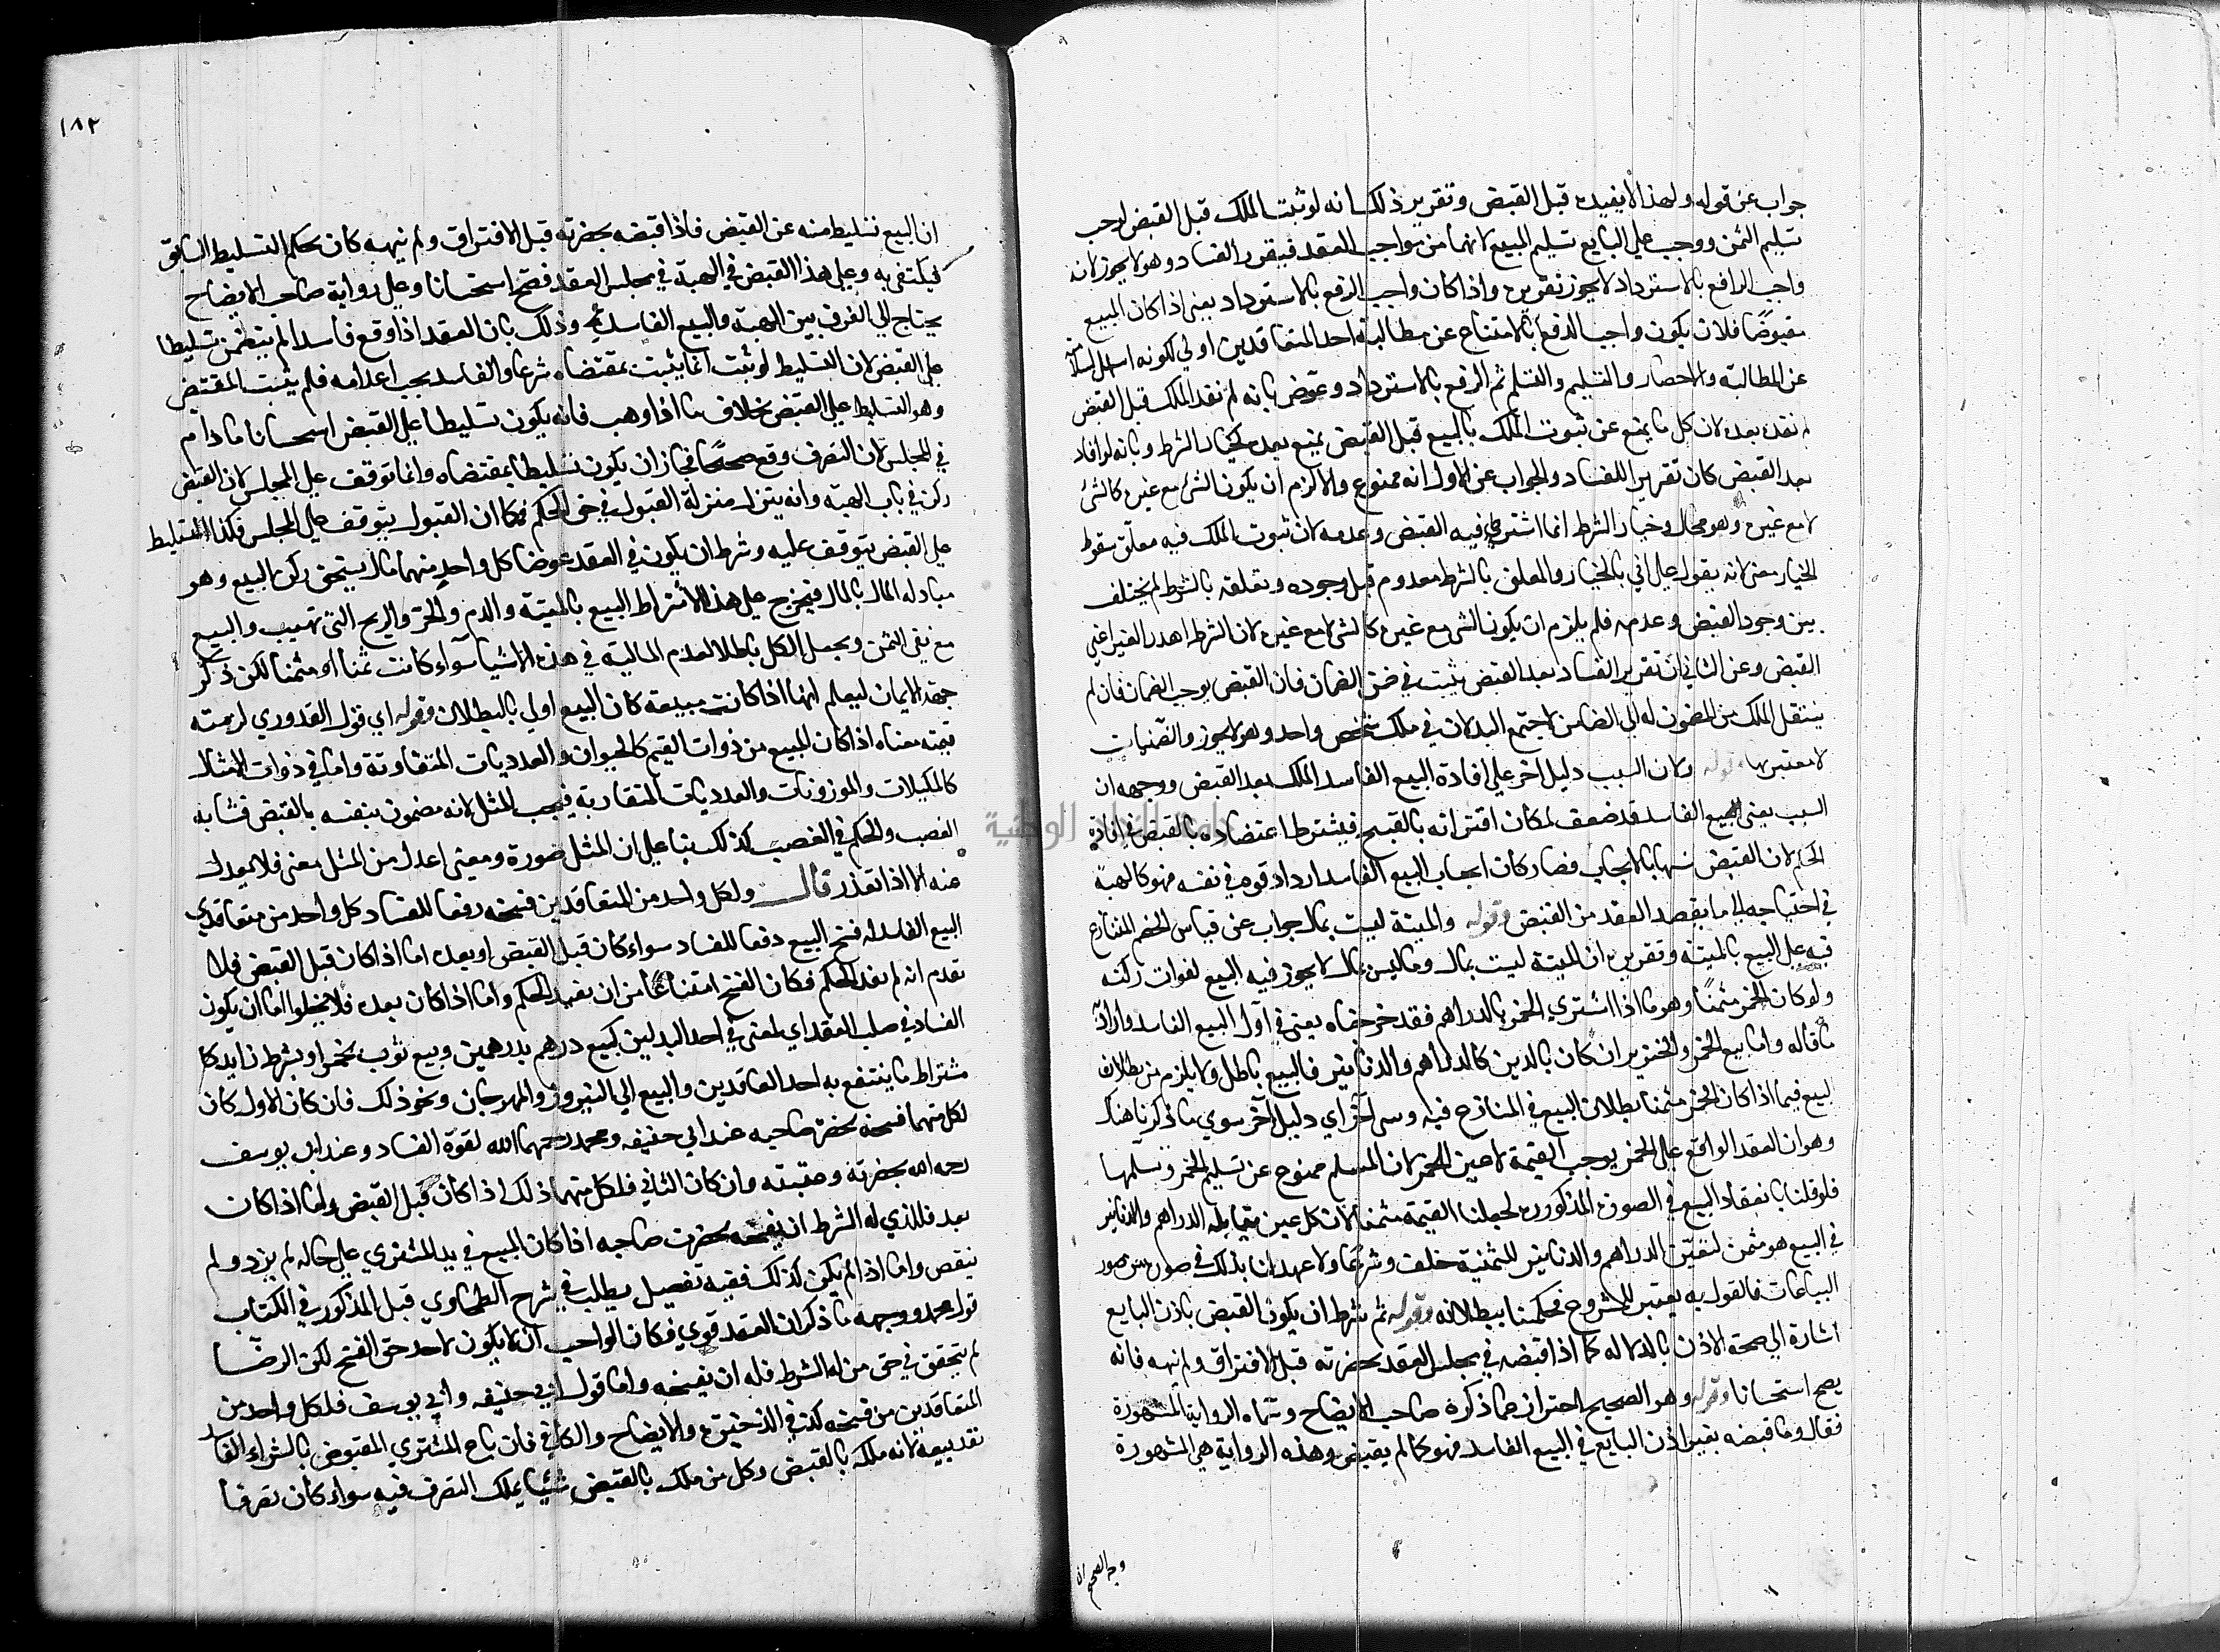 جواب عن قوله ولهذا لا يفيده قبل القبض وتقرير ذلك انه لو ثبت الملك قبل القبض لوجب
تسليم الثمن ووجب علي البايع تسليم المبيع لانهما من مواجب العقد فيتقرر الفساد وهو لا يجوز لانه
واجب الرافع بالاسترداد لا يجوز تقريره واذا كان واجب الرفع بالاسترداد يعني اذا كان المبيع
مقبوضا فلان يكون واجب الدفع بالامتناع عن مطالبة احد المتعاقدين اولي لكونه اسهل
عن المطالبة والاحضار والتسليم والتسلم ثم الرفع بالاسترداد وعوض بانه لم نفد الملك قبل القبض
لم نفده بعده لان كل ما يمنع عن ثبوت الملك بالبيع قبل القبض يمنع بعده كخيار الشرط وبانه لو افاد
بعد القبض كان تقريرا للفساد والجواب عن الاول انه ممنوع والا لزم ان يكون الشي مع غيره كالشي
لا مع غيره وهو محال وخيار الشرط انما اشترط فيه القبض وعدمه لان ثبوت الملك فيه معلق بسقوط
الخيار معني لانه يقول علي اني بالخيار والمعلق بالشرط معدوم قبل وجوده وتعلقه بالشرط لم يختلف
بين وجود القبض وعدمه فلم يلزم ان يكون الشي مع غيره كالشي لا مع غيره لان الشرط اهدر الغير اعني
القبض وعن الثاني ان تقرير الفساد بعد القبض يثبت في ضمن الضمان فان القبض يوجب الضمان فان لم
ينتقل الملك من المضمون له الي الضامن لاجتمع البدلان في ملك شخص واحد وهو لا يجوز والضمنيات
لا معتبر بها قوله ولان السبب دليل اخر علي افادة البيع الفاسد الملك بعد القبض ووجهه ان
السبب يعني البيع الفاسد قد ضعف لمكان اقترانه بالقبيح فيشترط اعتضاده بالقبض في افادة
الحكم لان القبض شبها بالايجاب فصار كان ايجاب البيع الفاسد ازداد قوة في نفسه فهو كالهبة
في احتياجه الي ما يقصد العقد من القبض وقوله والميتة ليست بمال جواب عن قياس الخصم المتنازع
فيه علي البيع بالميتة وتقريره ان الميتة ليست بمال وما ليس بمال لا يجوز فيه البيع لفوات ركنه
ولو كان الخمر مثمنا وهو ما اذا اشتري الخمر بالدراهم فقد خرجناه يعني في اول البيع الفاسد واراد
ما قاله واما بيع الخمر والخنزير ان كان بالدين كالدراهم والدنانير فالبيع باطل ولا يلزم من بطلان
البيع فيما اذا كان الخمر مثمنا بطلان البيع في المتنازع فيه وسي اخر اي دليل اخر سوي ما ذكرناه هناك
وهو ان العقد الواقع علي الخمر يوجب القيمة لا عين الخمر لان المسلم ممنوع عن تسليم الخمر وتسلمها
فلو قلنا بانعقاد البيع في الصورة المذكورة لجعلنا القيمة مثمنا لان كل عين مقابله الدراهم والدنانير
في البيع هو مثمن لتعين الدراهم والدنانير للثمنية خلف وشرعا ولا عهد لنا بذلك في صور من صور
البياعات فالقول به يعتبر للمشروع فحكمنا ببطلانه وقوله ثم شرط ان يكون القبض باذن البايع
اشارة الي صحة الاذن بالدلالة كما اذا قبضه في مجلس العقد بحضرته قبل الافتراق ولم ينهه فانه
يصح استحسانا وقوله وهو الصحيح احتراز عما ذكره صاحب الايضاح وسماه الرواية المشهورة
فقال وما قبضه بغير اذن البايع في البيع الفاسد فهو كما لم يقبض وهذه الرواية هي المشهورة
وجه الصحيح ان
١٨٢
ان البيع تسليط منه عن القبض فاذا قبضه بحضرته قبل الافتراق ولم ينهه كان بحكم التسليط السابق
فيكتفي به وعلي هذا القبض في الهبة في مجلس العقد فصح استحسانا وعلي رواية صاحب الايضاح
يحتاج الي الفرق بين الهبة والبيع الفاسد وذلك بان العقد اذا وقع فاسدا لم يتضمن تسليطا
علي القبض لان التسليط لو ثبت انما يثبت بمقتضاه شرعا والفاسد يجب اعدامه فلم يثبت المقتضي
وهو التسليط علي القبض بخلاف ما اذا وهب فانه يكون تسليطا علي القبض استحسانا ما دام
في المجلس لان التصرف وقع صحيحا فجاز ان يكون تسليطا بمقتضاه وانما توقف علي المجلس لان القبض
ركن في باب الهبة وانه يتنزل منزلة القبول في حق الحكم فكما ان القبول يتوقف علي المجلس فكذا التسليط
علي القبض يتوقف عليه وشرط ان يكون في العقد عوضا كل واحد منهما مال يتحقق ركن البيع وهو
مبادلة المال بالمال فيخرج علي هذا الاشتراط البيع بالميتة والدم والحر والريح التي تهيب والبيع
مع نفي الثمن ويجعل الكل باطلا لعدم المالية في هذه الاشياء سواء كانت ثمنا او مثمنا لكن ذكر
جهة الايمان ليعلم انها اذا كانت مبيعة كان البيع اولي بالبطلان وقوله اي قول القدوري لزمته
قيمته معناه اذا كان المبيع من ذوات القيم كالحيوان والعدديات المتفاوتة واما في ذوات الامثال
كالمكيلات والموزونات والعدديات المتقاربة فيجب المثل لانه مضمون بنفسه بالقبض فشابه
الغصب والحكم في الغصب كذلك بناء علي ان المثل صورة ومعني اعدل من المثل معني فلا يعدل
عنه الا اذا تعذر قال ولكل واحد من المتعاقدين فسخه رفعا للفساد كل واحد من متعاقدي
البيع الفاسد له فسخ البيع دفعا للفساد سواء كان قبل القبض او بعده اما اذا كان قبل القبض فلما
تقدم انه لم يفد الحكم فكان الفسخ امتناعا من ان يفيد الحكم واما اذا كان بعده فلا يخلوا اما ان يكون
الفساد في صلب العقد اي لمعني في احد البدلين كبيع درهم بدرهمين وبيع ثوب بخمر او بشرط زايد كا
شتراط ما ينتفع به احد العاقدين والبيع الي النيروز والمهرجان ونحو ذلك فان كان الاول كان
لكل منهما فسخه بحضرة صاحبه عند ابي حنيفه ومحمد رحمهما الله لقوة الفساد وعند ابي يوسف
رحمه الله بحضرته وغيبته وان كان الثاني فلكل منهما ذلك اذا كان قبل القبض واما اذا كان
بعده فللذي له الشرط ان يفسخه بحضرت صاحبه اذا كان المبيع في يد المشتري علي حاله لم يزد ولم
ينقص واما اذا لم يكن كذلك ففيه تفصيل يطلب في شرح الطحاوي قبل المذكور في الكتاب
قول محمد ووجهه ما ذكر ان العقد قوي فكان الواجب ان لا يكون لاحد حق الفسخ لكن الرضا
لم يتحقق في حق من له الشرط فله ان يفسخه واما قول ابي حنيفه وابي يوسف فلكل واحد من
المتعاقدين من فسخه كذا في الذخيرة والايضاح والكافي فان باع المشتري المقبوض بالشراء الفاسد
نفد بيعه لانه ملكه بالقبض وكل من ملك بالقبض شيئا يملك التصرف فيه سواء كان تصرفا